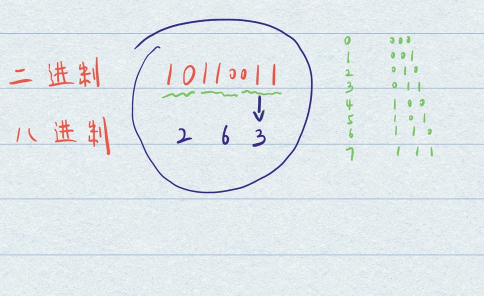 二进制 10110011
八进制 2 6 3
0 000
1 001
2 010
3 011
4 100
5 101
6 110
7 111